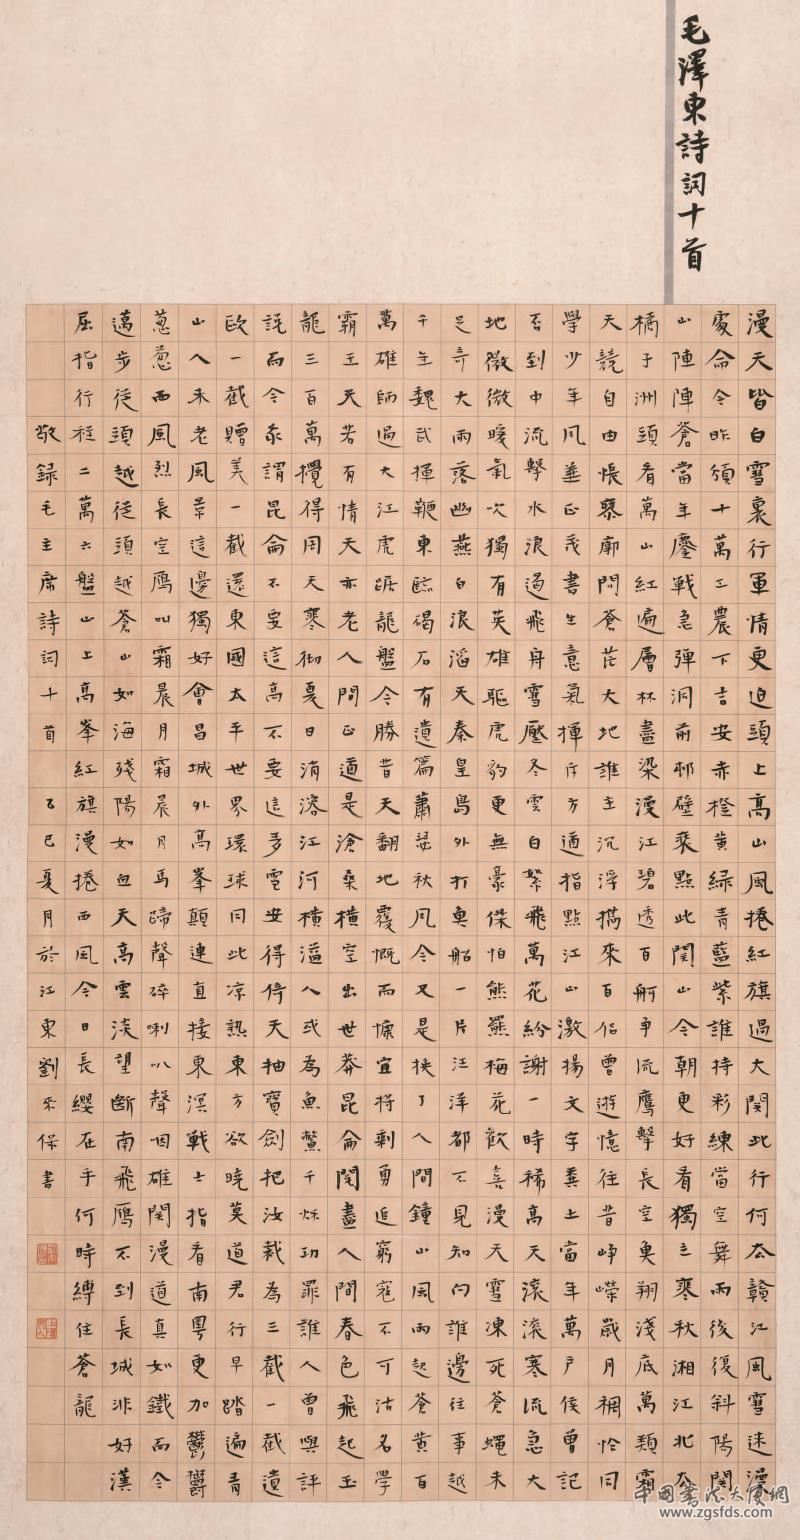 毛澤東詩詞十首
漫天皆白雪裏行軍情更迫頭上高山風捲紅旗過大関此行何去贛江風雪迷漫
處命令昨頒十萬工農下吉安赤橙黄緑青藍紫誰持彩練當空舞雨後復斜陽関
山陣陣蒼當年鏖戰急彈洞前邨壁裝點此関山今朝更好看獨立寒秋湘江北去
橘子洲頭看萬山紅遍層林盡染漫江碧透百舸争流鷹擊長空魚翔淺底萬類霜
天競自由悵寥廓問蒼茫大地誰主沉浮攜來百侣曾遊憶往昔崢嶸歲月稠恰同
學少年風華正茂書生意氣揮斥方遒指點江山激揚文字糞土當年萬户侯曾記
否到中流擊水浪遏飛舟雪壓冬雲白絮飛萬花紛謝一時稀高天滾滾寒流急大
地微微暖氣吹獨有英雄驅虎豹更無豪傑怕熊羆梅花歡喜漫天雪凍死蒼蠅未
足奇大雨落幽燕白浪滔天秦皇島外打魚船一片汪洋都不見知向誰邊往事越
千年魏武揮鞭東臨碣石有遺篇蕭瑟秋風今又是換了人間鐘山風雨起蒼黄百
萬雄師過大江虎踞龍盤今勝昔天翻地覆慨而慷宜將剩勇追窮寇不可沽名學
霸王天若有情天亦老人間正道是滄桑橫空出世莽昆侖閱盡人間春色飛起玉
龍三百萬攪得周天寒徹夏日消溶江河橫溢人或為魚鱉千秋功罪誰人曾與評
説而今我謂昆侖不要這高不要這多雪安得倚天抽寶劍把汝裁為三截一截遺
歐一截贈美一截還東國太平世界環球同此凉熱東方欲曉莫道君行早踏遍青
山人未老風景這邊獨好會昌城外高峯顛連直接東溟戰士指看南粤更加鬱鬱
葱葱西風烈長空鴈叫霜晨月霜晨月馬蹄聲碎喇叭聲咽雄関漫道真如鐵而今
邁步從頭越從頭越蒼山如海殘陽如血天高雲淡望斷南飛鴈不到長城非好漢
屈指行程二萬六盤山上高峯紅旗漫捲西風今日長纓在手何時縛住蒼龍
敬録毛主席詩詞十首 乙巳夏月於江東劉來保書
中國書法大廈網
www.zgsfds.com